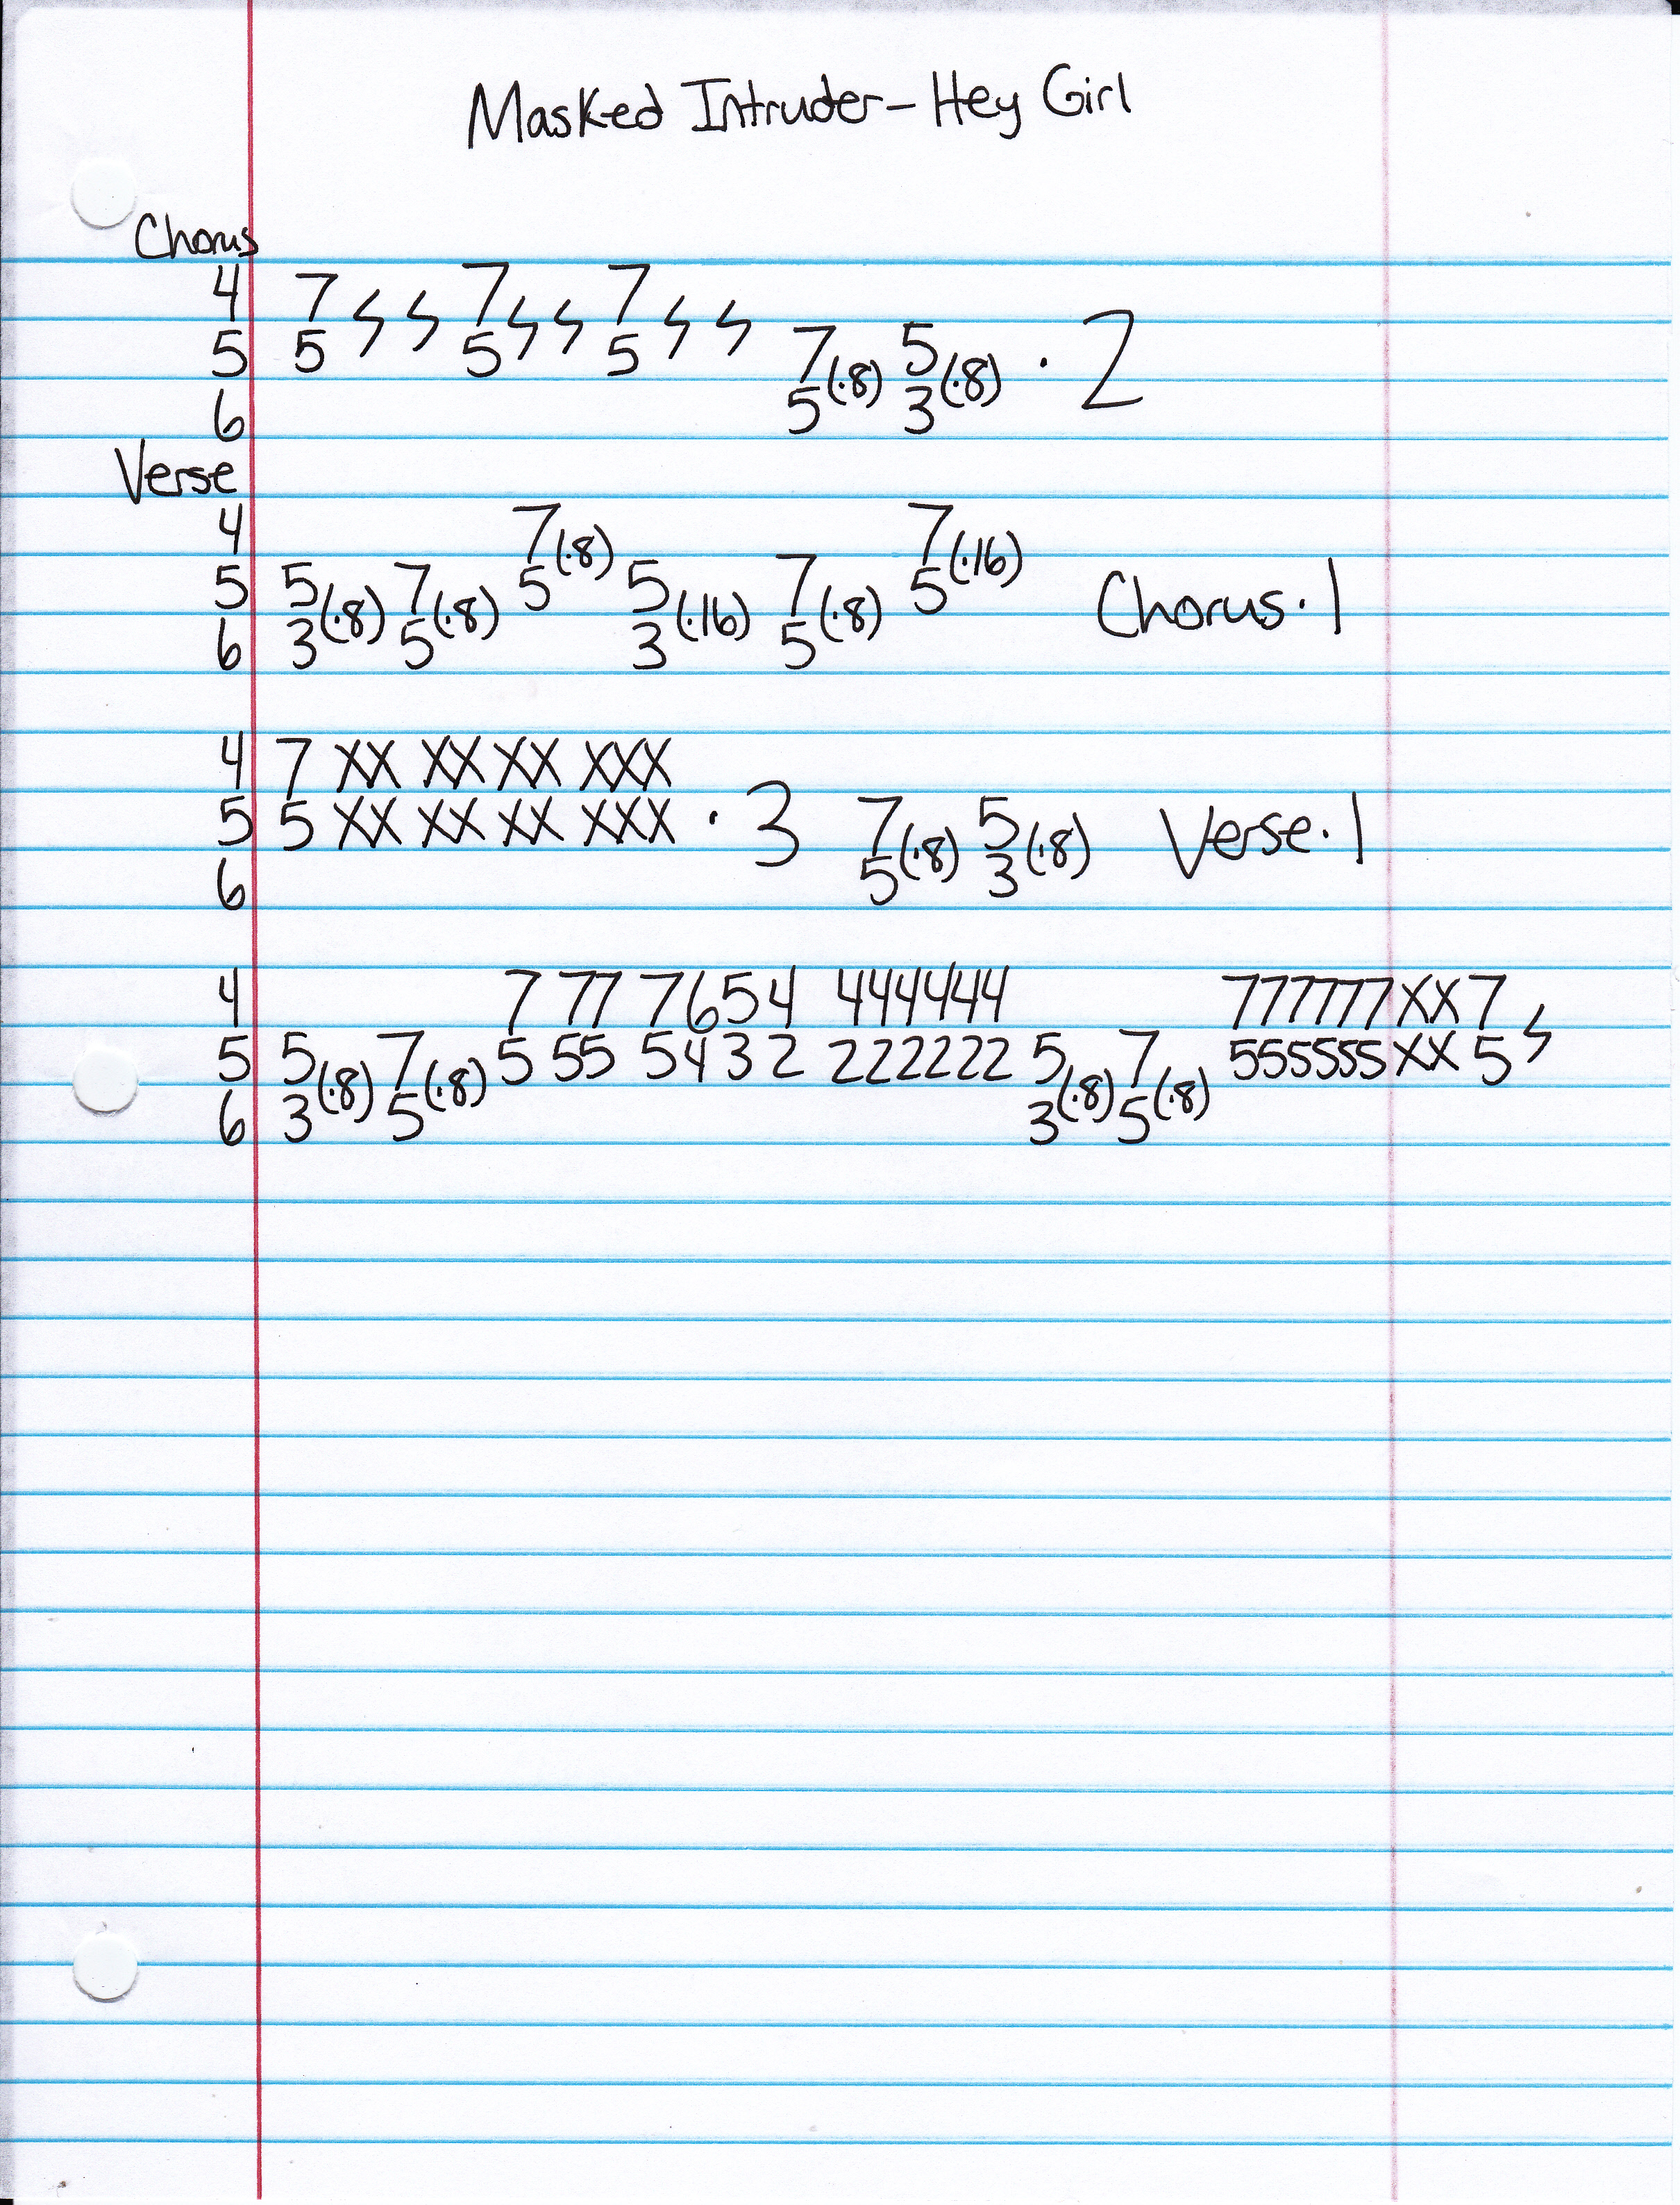 Masked Intruder - Hey Girl
Chorus
4 7 7 7
5 5 5 5 7(·8) 5(·8) · 2
6 5 3
Verse
4 7(·8) 7(·16)
5 5(·8) 7(·8) 5 5(·16) 7(·8) 5 Chorus · 1
6 3 5 3 5
4 7 XX XX XX XXX
5 5 XX XX XX XXX · 3 7(·8) 5(·8) Verse · 1
6 5 3
4 7 77 7654 444444 777777XX7
5 5(·8) 7(·8) 5 55 5432 222222 5(·8) 7(·8) 555555XX5
6 3 5 3 5